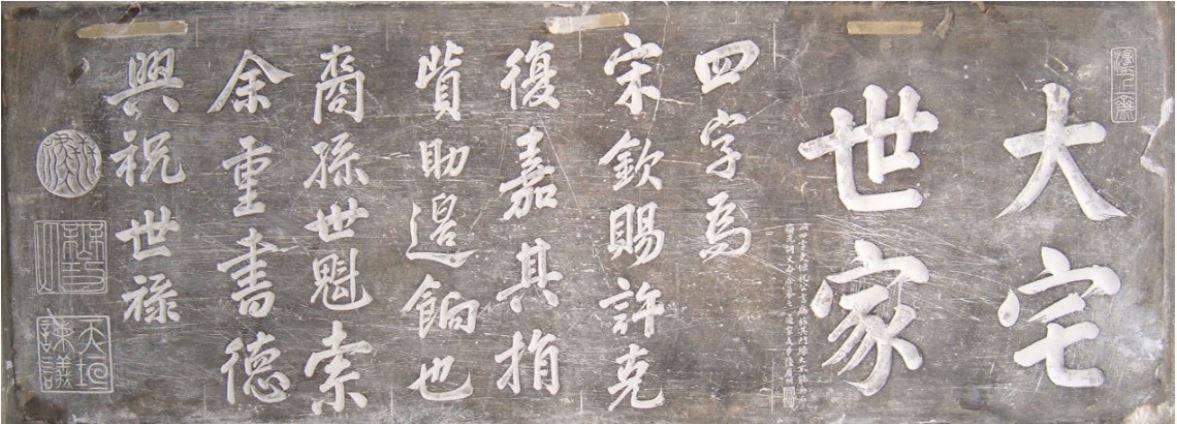 大宅
世家
四字為
宋欽賜許克
復嘉其捐
貲助邊餉也
裔孫世魁索
余重書德
興祝世祿
天垣
諫議